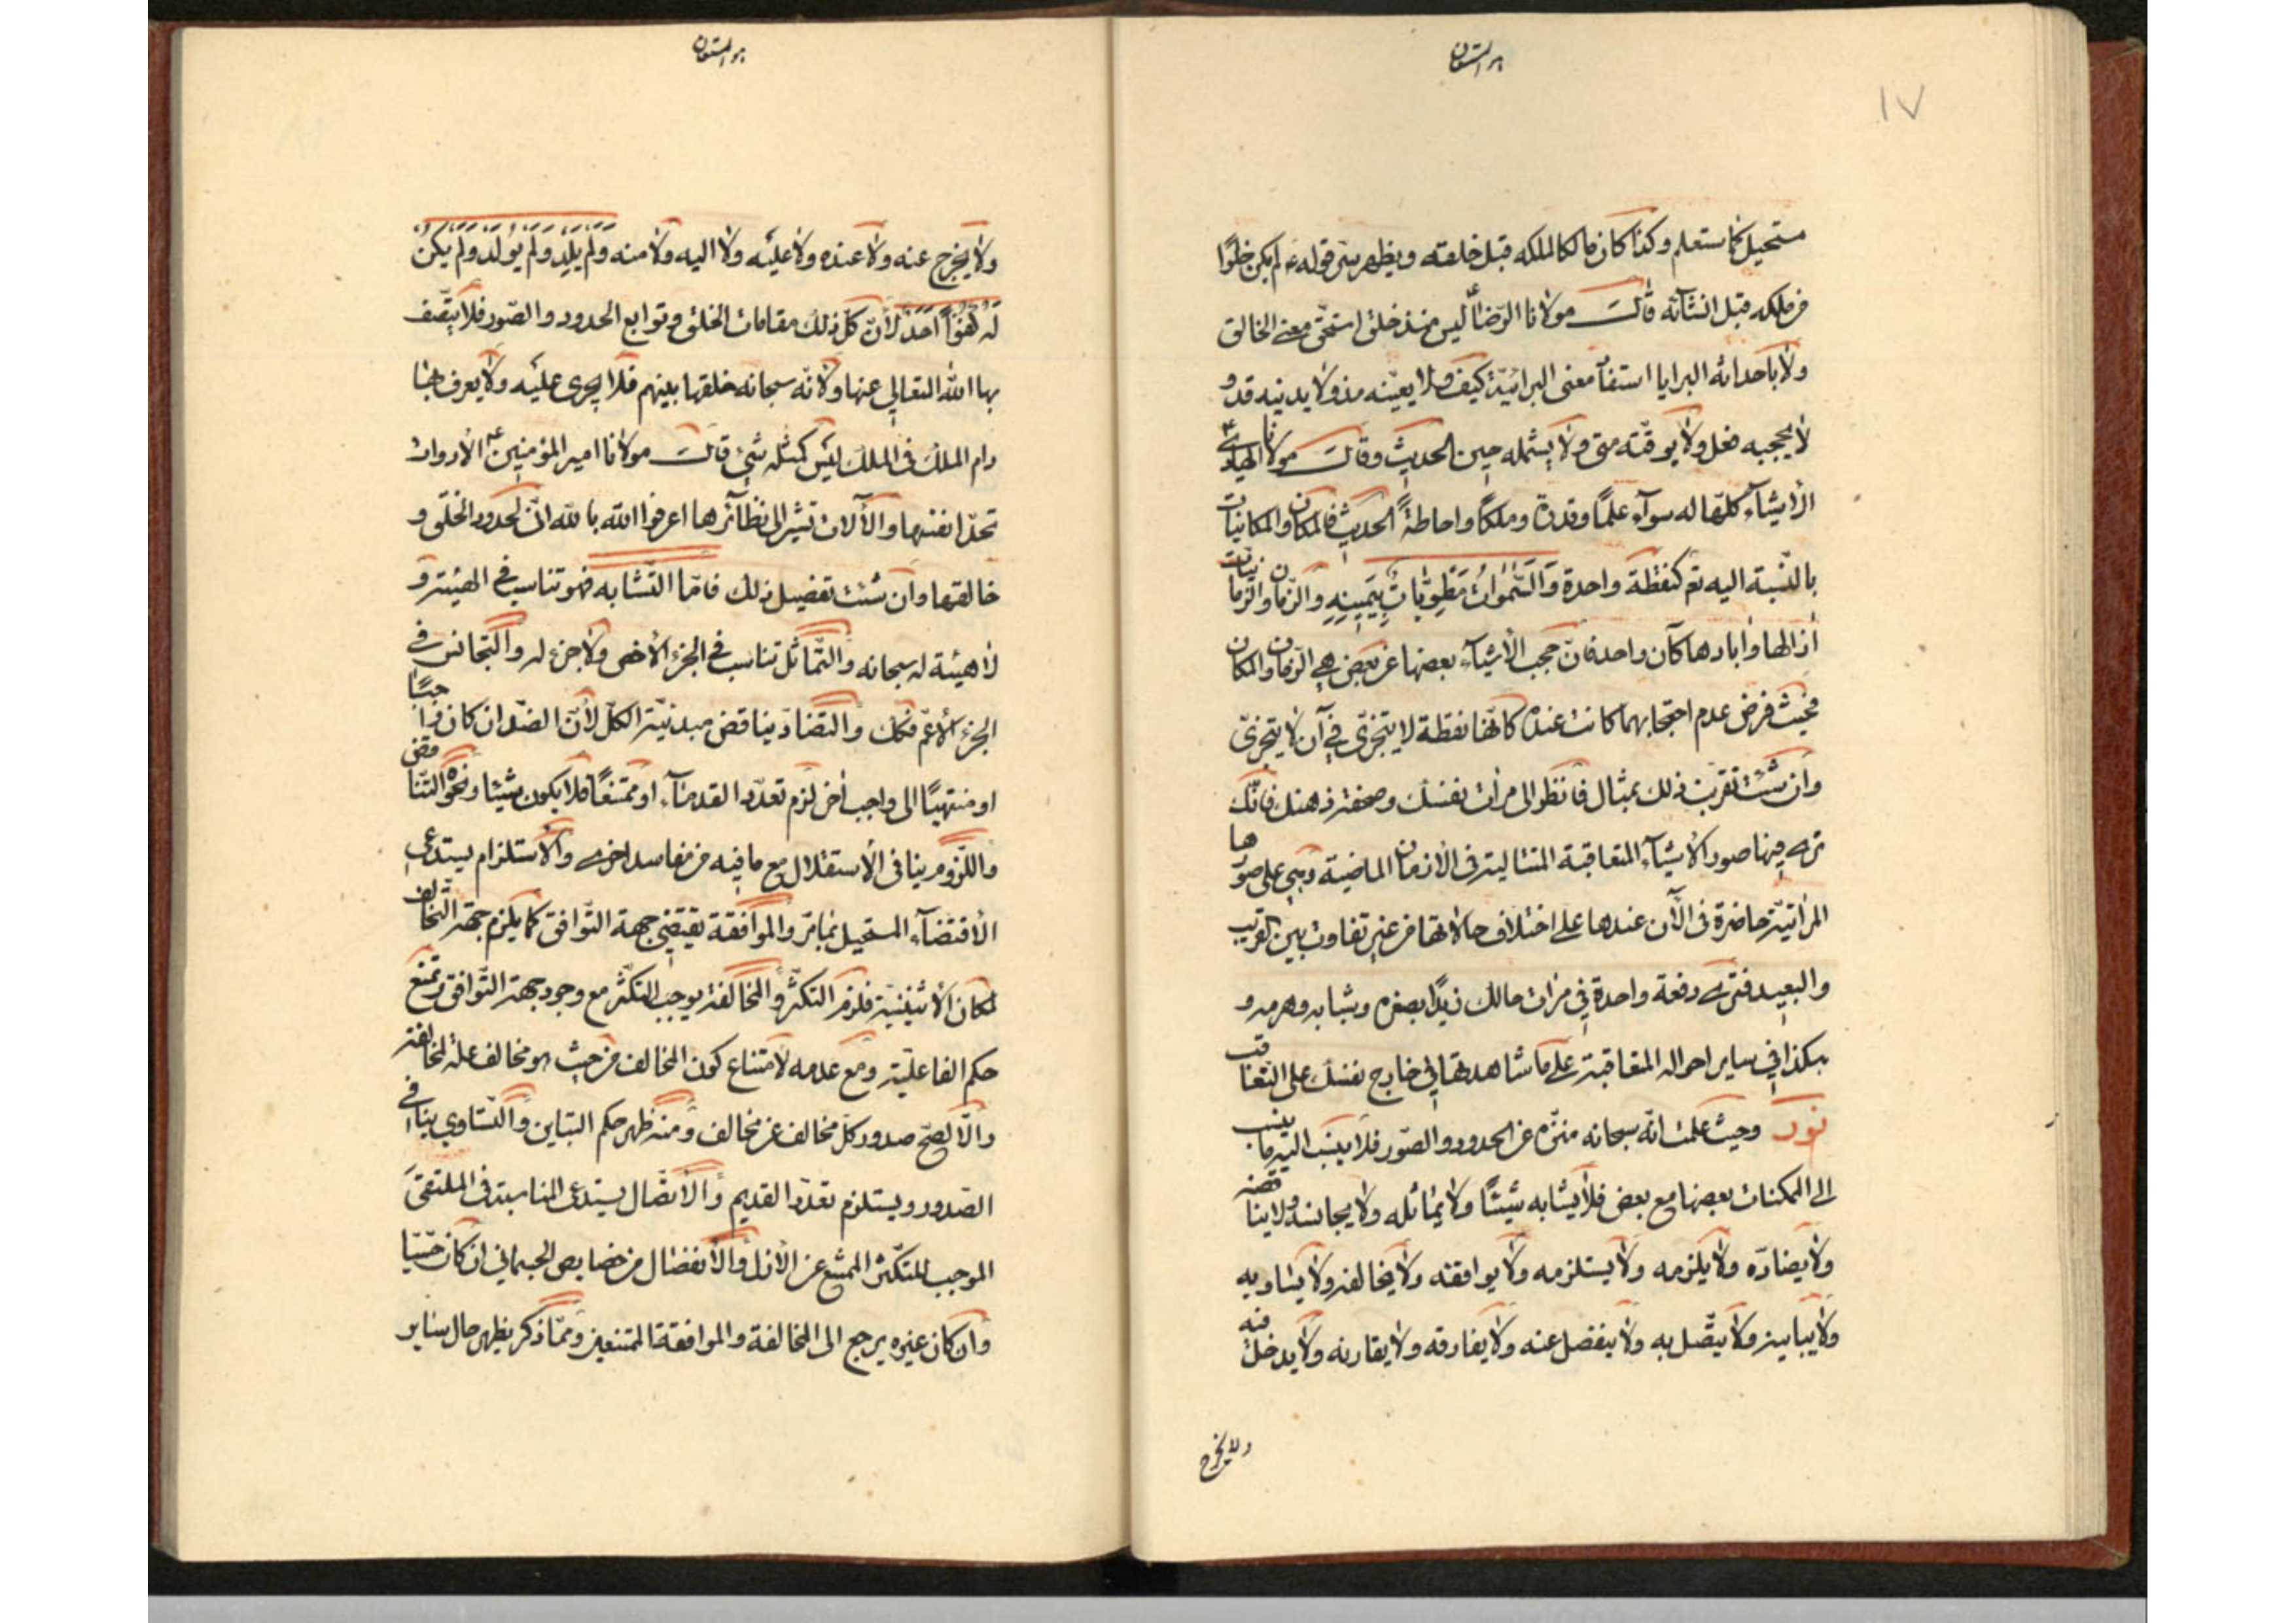 هو المستعان
١٧
مستحيل كما ستعلم وكذا كان مالكا لملكه قبل خلقته ويظهر من قوله ع لم يكن خلوًا
من ملكه قبل انشائه قال مولانا الرضا ليس منذ خلق استحق معنى الخالق
ولا باحداثه البرايا استفاد معنى البرائية كيف ولا يغيبه مذ ولا يدنيه قد و
لا يحجبه لعل ولا يوقته متى ولا يشمله حين الحديث وقال مولانا الهادي ع
الأشياء كلها له سواء علمًا وقدرة وملكًا واحاطةً الحديث فالمكان والمكانيات
بالنسبة اليه تع كنقطة واحدة وَالسَّمٰوَاتُ مَطْوِيَّاتٌ بِيَمِينِهِ والزمان والزمانيات
آزالها وآبادها كآن واحد فان حجب الأشياء بعضها عن بعض هي الزمان والمكان
فحيث فرض عدم احتجابهما كانت عنده كانها نقطة لا يتجزى في آن لا يتجزى
وان شئت تقريب ذلك بمثال فانظر الى مرات نفسك وصحفة ذهنك فانك
ترى فيها صور الأشياء المتعاقبة المتتالية في الازمان الماضية وهي على صورها
المراتية حاضرة في الآن عندها على اختلاف حالاتها من غير تفاوت بين القريب
والبعيد فترى دفعة واحدة في مرات حالك زيدًا بصغره وشبابه وهرمه و
هكذا في ساير احواله المتعاقبة على ما شاهدتها في خارج نفسك على التعاقب
نور وحيث علمت انه سبحانه منزه عن الحدود والصور فلا ينسب اليه ما ينسب
الى الممكنات بعضها مع بعض فلا يشابه شيئًا ولا يماثله ولا يجانسه ولا يناقضه
ولا يضاده ولا يلزمه ولا يستلزمه ولا يوافقه ولا يخالفه ولا يساويه
ولا يباينه ولا يتصل به ولا ينفصل عنه ولا يفارقه ولا يقارنه ولا يدخل فيه
ولا يخرج
هو المستعان
ولا يخرج عنه ولا عنده ولا عليه ولا اليه ولا منه وَلَمْ يَلِدْ وَلَمْ يُولَدْ وَلَمْ يَكُنْ
لَهُ كُفُوًا اَحَدٌ لأن كل ذلك مقامات الخلق وتوابع الحدود والصور فلا يتصف
بها الله المتعالي عنها ولأنه سبحانه خلقها بينهم فلا يجرى عليه ولا يعرف بها
دام الملك في الملك ليس كمثله شيء قال مولانا امير المؤمنين ع الأدوات
تحد انفسها والآلات تشير الى نظائرها اعرفوا الله بالله ان لحدود الخلق و
خالقها وان شئت تفصيل ذلك فاما التشابه فهو تناسب في الهيئة و
لا هيئة له سبحانه والتماثل تناسب في الجزء الأخص ولا جزء له والتجانس في
الجزء الأعم فكك والتضاد يناقض مبدئية الكل لأن الضد ان كان واجبًا
او منتهيًا الى واجب اخر لزم تعدد القدماء او ممتنعًا فلا يكون شيئا ونحوه التناقض
واللزوم ينافي الأستقلال مع ما فيه من مفاسد اخرى والأستلزام يستدعي
الأقتضاء المستحيل بما مر والموافقة تقتضي جهة التوافق كما يلزم جهة التخالف
لمكان الأثنينية فلزم التكثر والمخالفة يوجب التكثر مع وجود جهة التوافق وتمنع
حكم الفاعلية ومع عدمه لامتناع كون المخالف من حيث هو مخالف علة لمخالفته
والا لصح صدور كل مخالف عن مخالف ومنه ظهر حكم التباين والتساوي ينافي
الصدور ويستلزم تعدد القديم والأتصال يستدعي المناسبة في الملتقى
الموجب للتكثر الممتنع عن الأزل والأنفصال من خصايص الجسماني ان كان حسيا
وان كان غيره يرجع الى المخالفة والموافقة الممتنعين ومما ذكر يظهر حال ساير